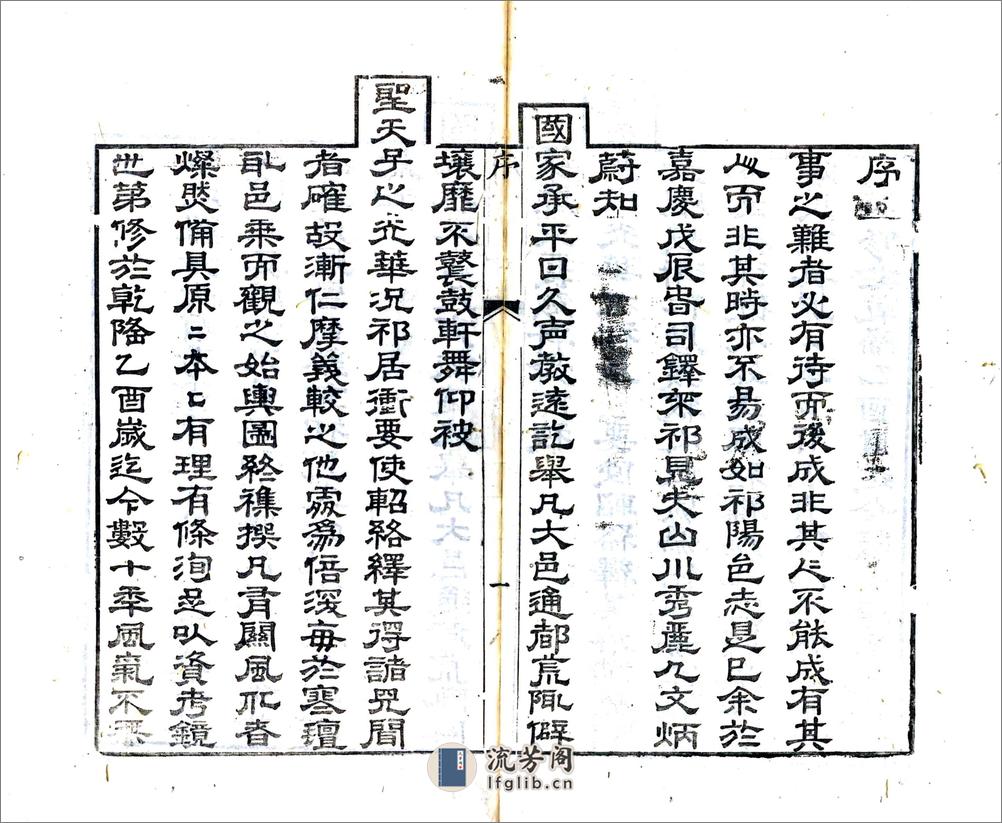 序
事之難者必有待而後成非其人不能成有其
人而非其時亦不易成如祁陽邑志是已余於
嘉慶戊辰春司鐸來祁見夫山川秀麗人文炳
蔚知
國家承平日久声教遠訖舉凡大邑通都荒陬僻
序
一
壤靡不鼚鼓軒舞仰被
聖天子之光華況祁居衝要使軺絡繹其得諸見聞
者確故漸仁摩義較之他處爲倍深每於寒氊
取邑乘而觀之始輿圖終襍撰凡有關風化者
燦然備具原二本二有理有條洵足以資考鏡
世第修於乾隆乙酉歲迄今數十年風氣不無
流芳阁
lfglib.cn